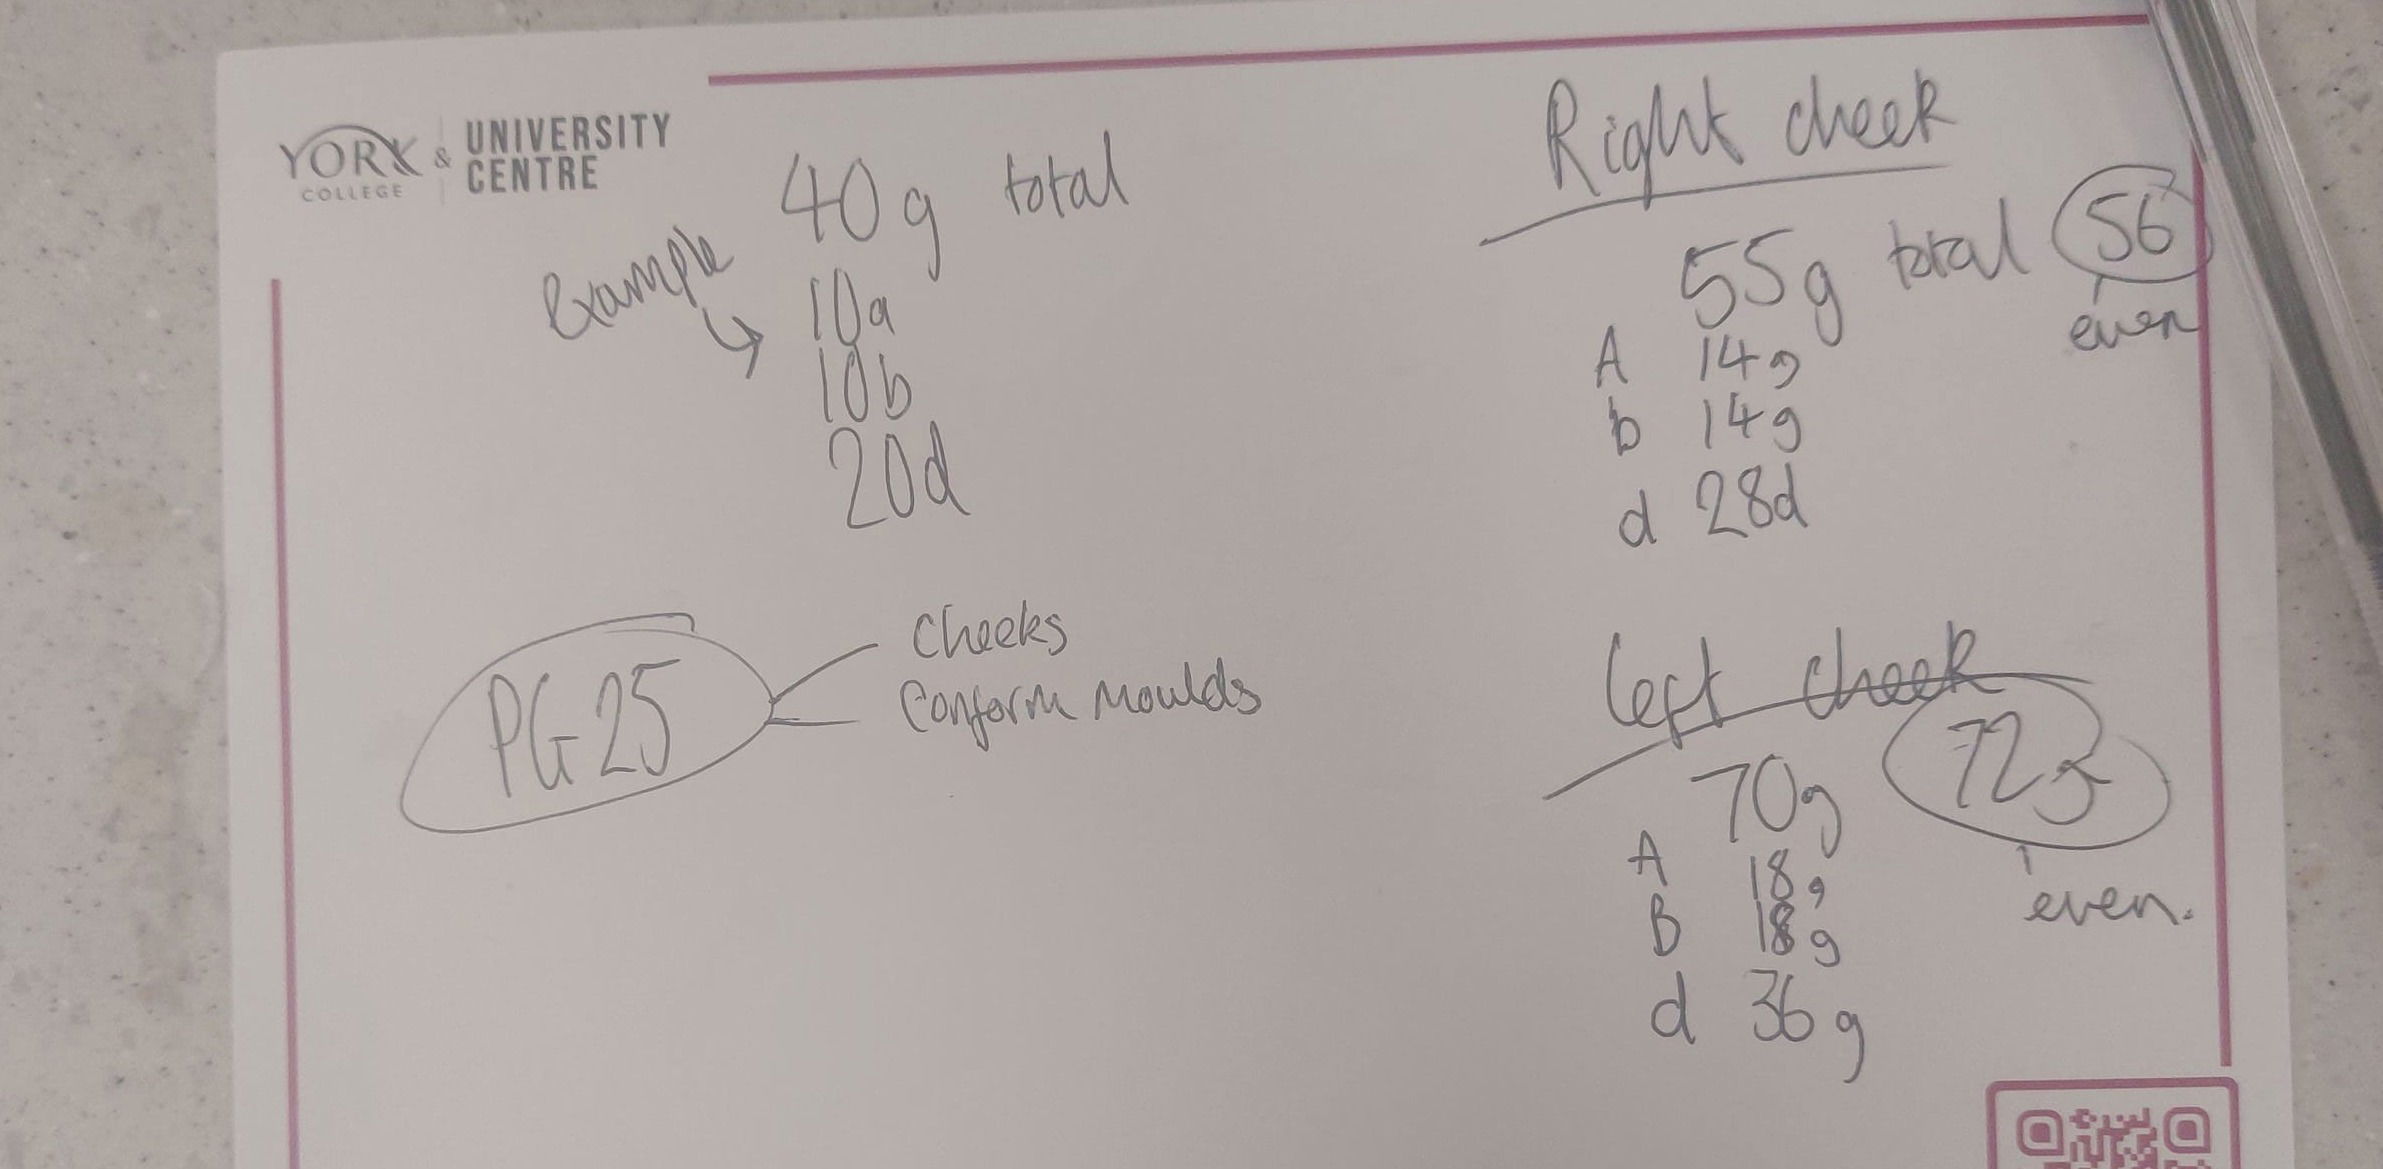 YORK & UNIVERSITY
COLLEGE CENTRE
40g total
Example
10a
10b
20d
PG25
Cheeks
Conform Moulds
Right cheek
55g total 56
even
A 14g
b 14g
d 28d
left cheek
70g 72g
even.
A 18g
B 18g
d 36g